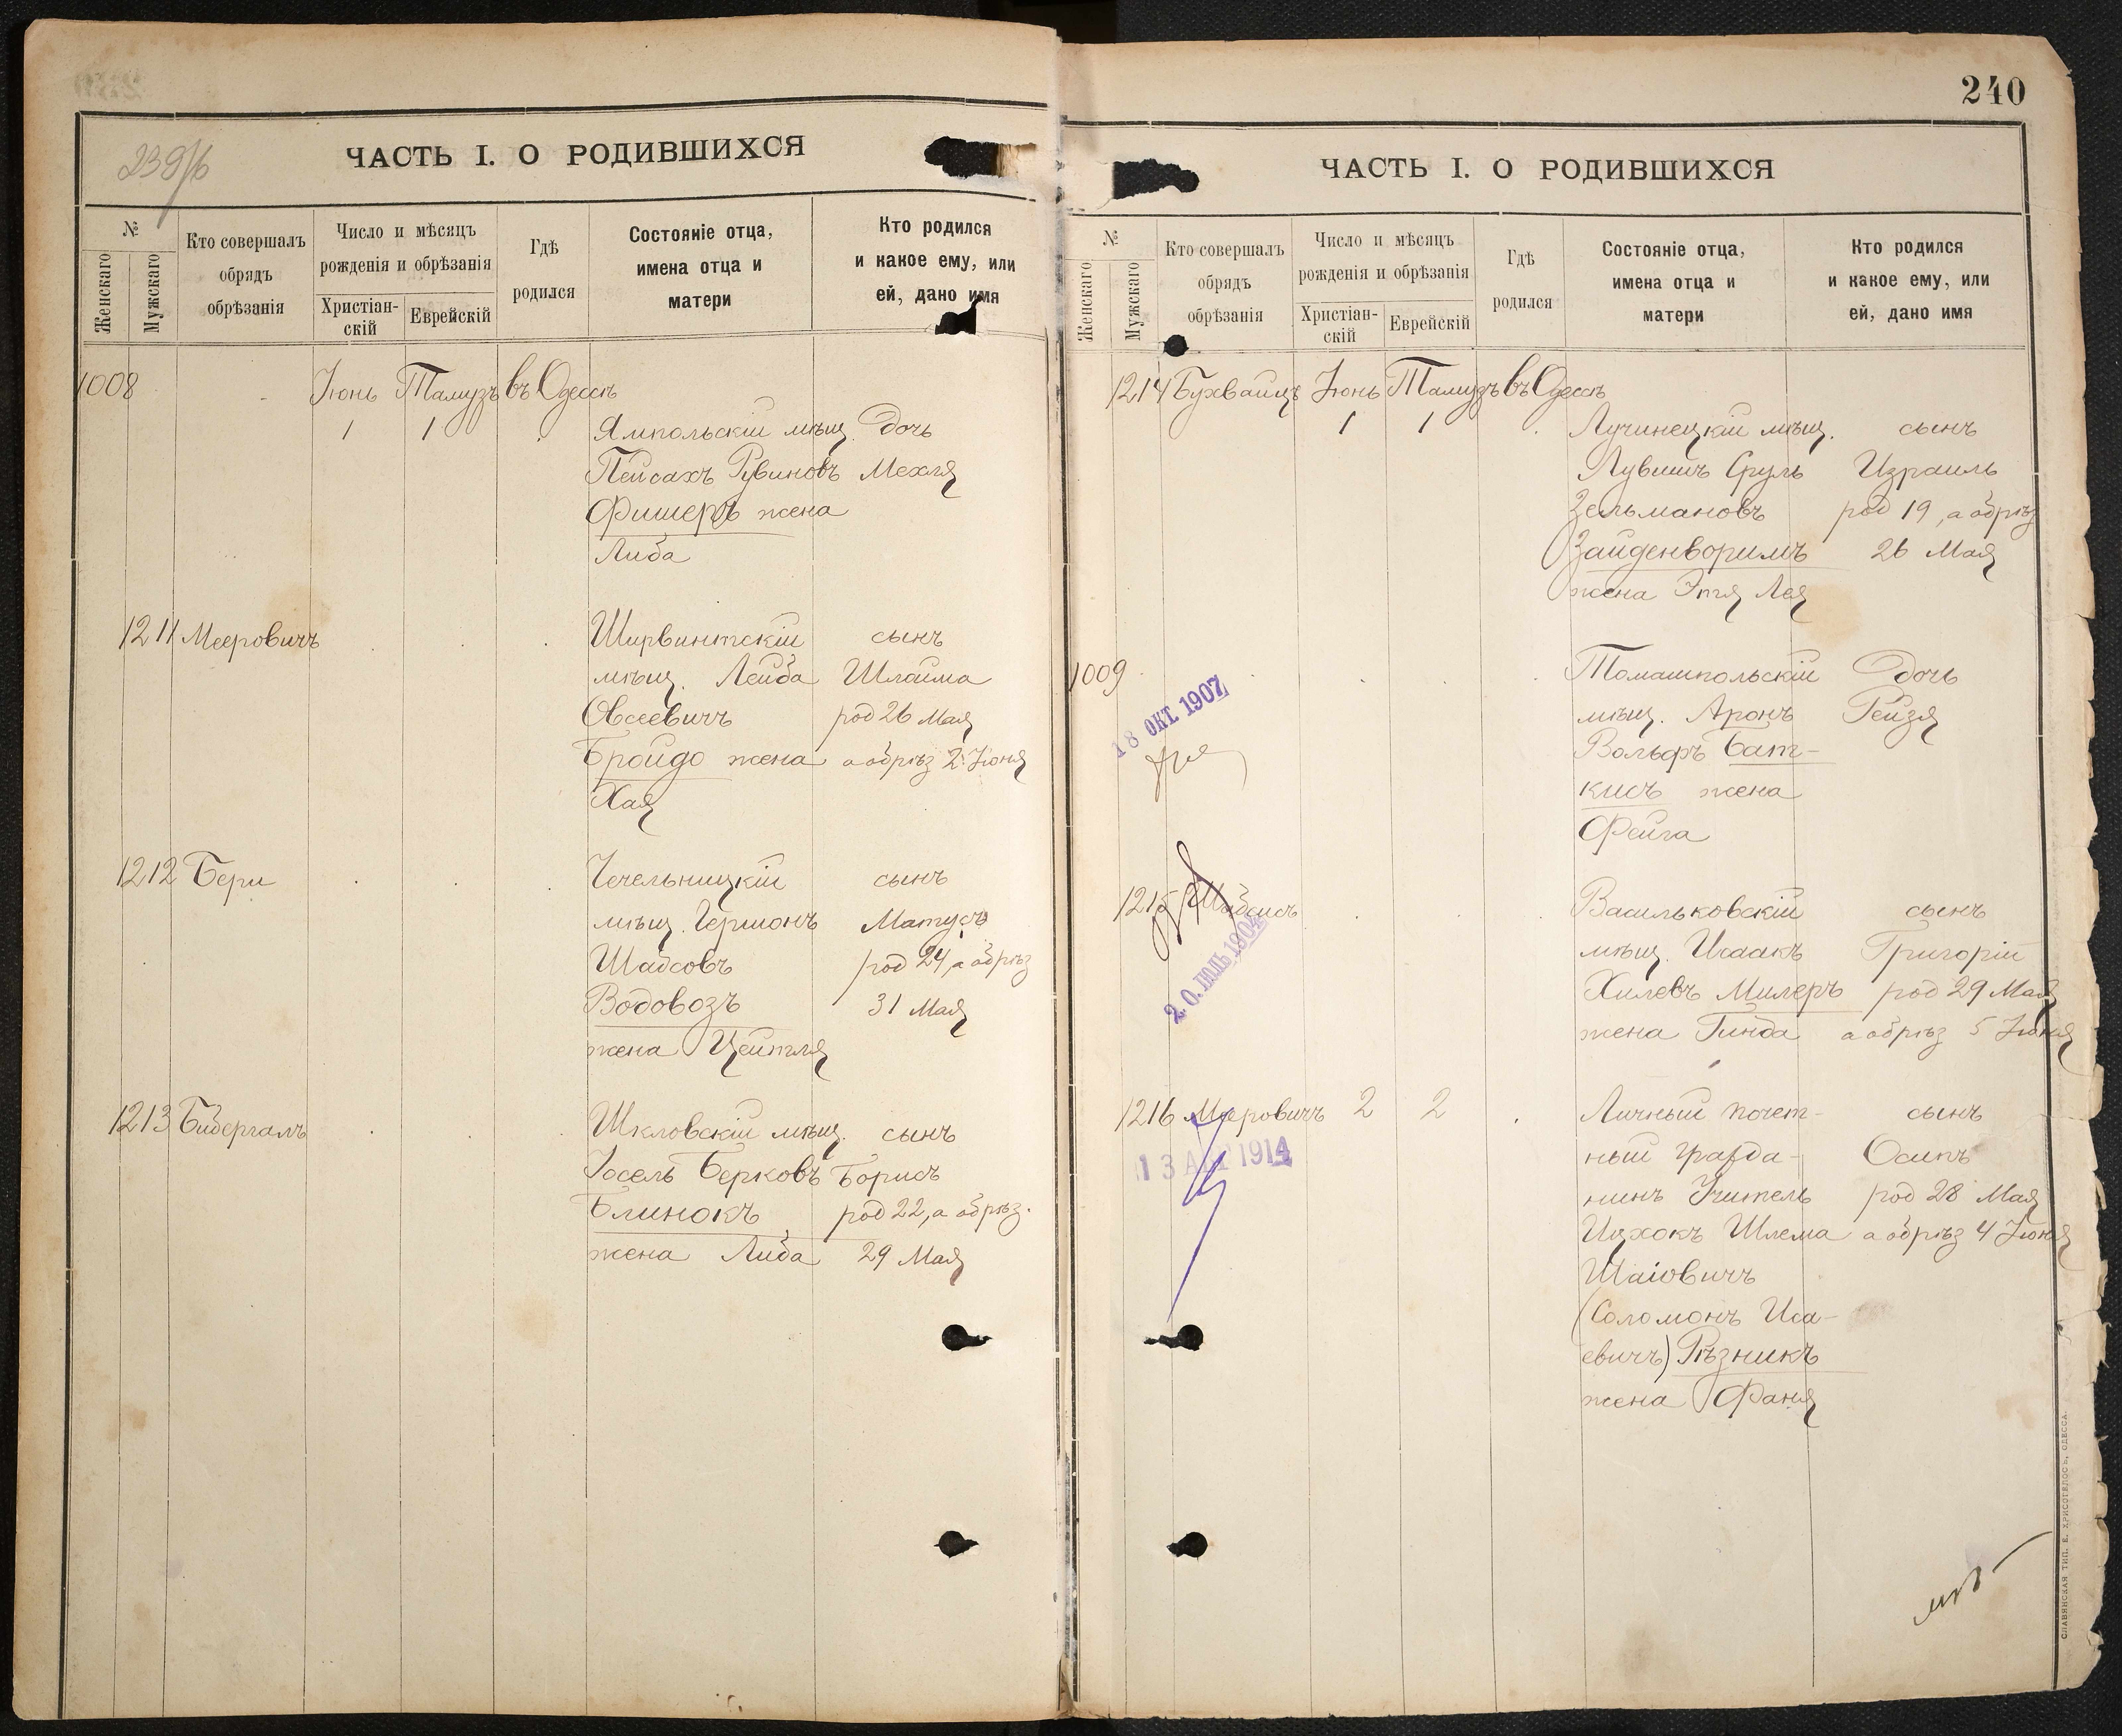 239/б
ЧАСТЬ I. О РОДИВШИХСЯ
№
Женскаго
Мужскаго
Кто совершалъ
обрядъ
обрѣзанія
Число и мѣсяцъ
рожденія и обрѣзанія
Христіан-
скій
Еврейскій
Гдѣ
родился
Состояніе отца,
имена отца и
матери
Кто родился
и какое ему, или
ей, дано имя
1008 Іюнь Тамузъ въ Одессѣ
1 1 Ямпольскій мѣщ. Дочь
Пейсахъ Рувиновъ Мехля
Фишеръ жена
Либа
1211 Мееровичъ Ширвинтскій сынъ
мѣщ. Лейба Шлойма
Овсеевичъ род 26 Мая
Бройдо жена а обрѣз 2 Іюня
Хая
1212 Бери Чечельницкій сынъ
мѣщ. Гершонъ Матусъ
Шабсовъ род 24, а обрѣз
Водовозъ 31 Мая
жена Цейтля
1213 Бидергалъ Шкловскій мѣщ. сынъ
Іосель Берковъ Борисъ
Блинокъ род 22, а обрѣз.
жена Либа 29 Мая
240
ЧАСТЬ I. О РОДИВШИХСЯ
№
Женскаго
Мужскаго
Кто совершалъ
обрядъ
обрѣзанія
Число и мѣсяцъ
рожденія и обрѣзанія
Христіан-
скій
Еврейскій
Гдѣ
родился
Состояніе отца,
имена отца и
матери
Кто родился
и какое ему, или
ей, дано имя
1214 Бухвайцъ Іюнь Тамузъ въ Одессѣ
1 1 Лучинецкій мѣщ. сынъ
Лувишъ Сруль Израиль
Зельмановъ род 19, а обрѣз
Зайденворимъ 26 Мая
жена Этя Лея
1009 Томашпольскій Дочь
18 ОКТ. 1907
мѣщ. Аронъ Рейзя
Вольфъ Бат-
кисъ жена
Фейга
1215 Шабсисъ Васильковскій сынъ
2.0. ІЮЛЬ 1904
мѣщ. Исаакъ Григорій
Хилевъ Милеръ род 29 Мая
жена Гинда а обрѣз 5 Іюня
1216 Мееровичъ 2 2 Личный почет- сынъ
13 АПР 1914
ный гражда- Осипъ
нинъ Учитель род 28 Мая
Ицхокъ Шлема а обрѣз 4 Іюня
Шаіовичъ
(Соломонъ Иса-
евичъ) Рѣзникъ
жена Фаня
СЛАВЯНСКАЯ ТИП. Е. ХРИСОГЕЛОСЪ, ОДЕССА.